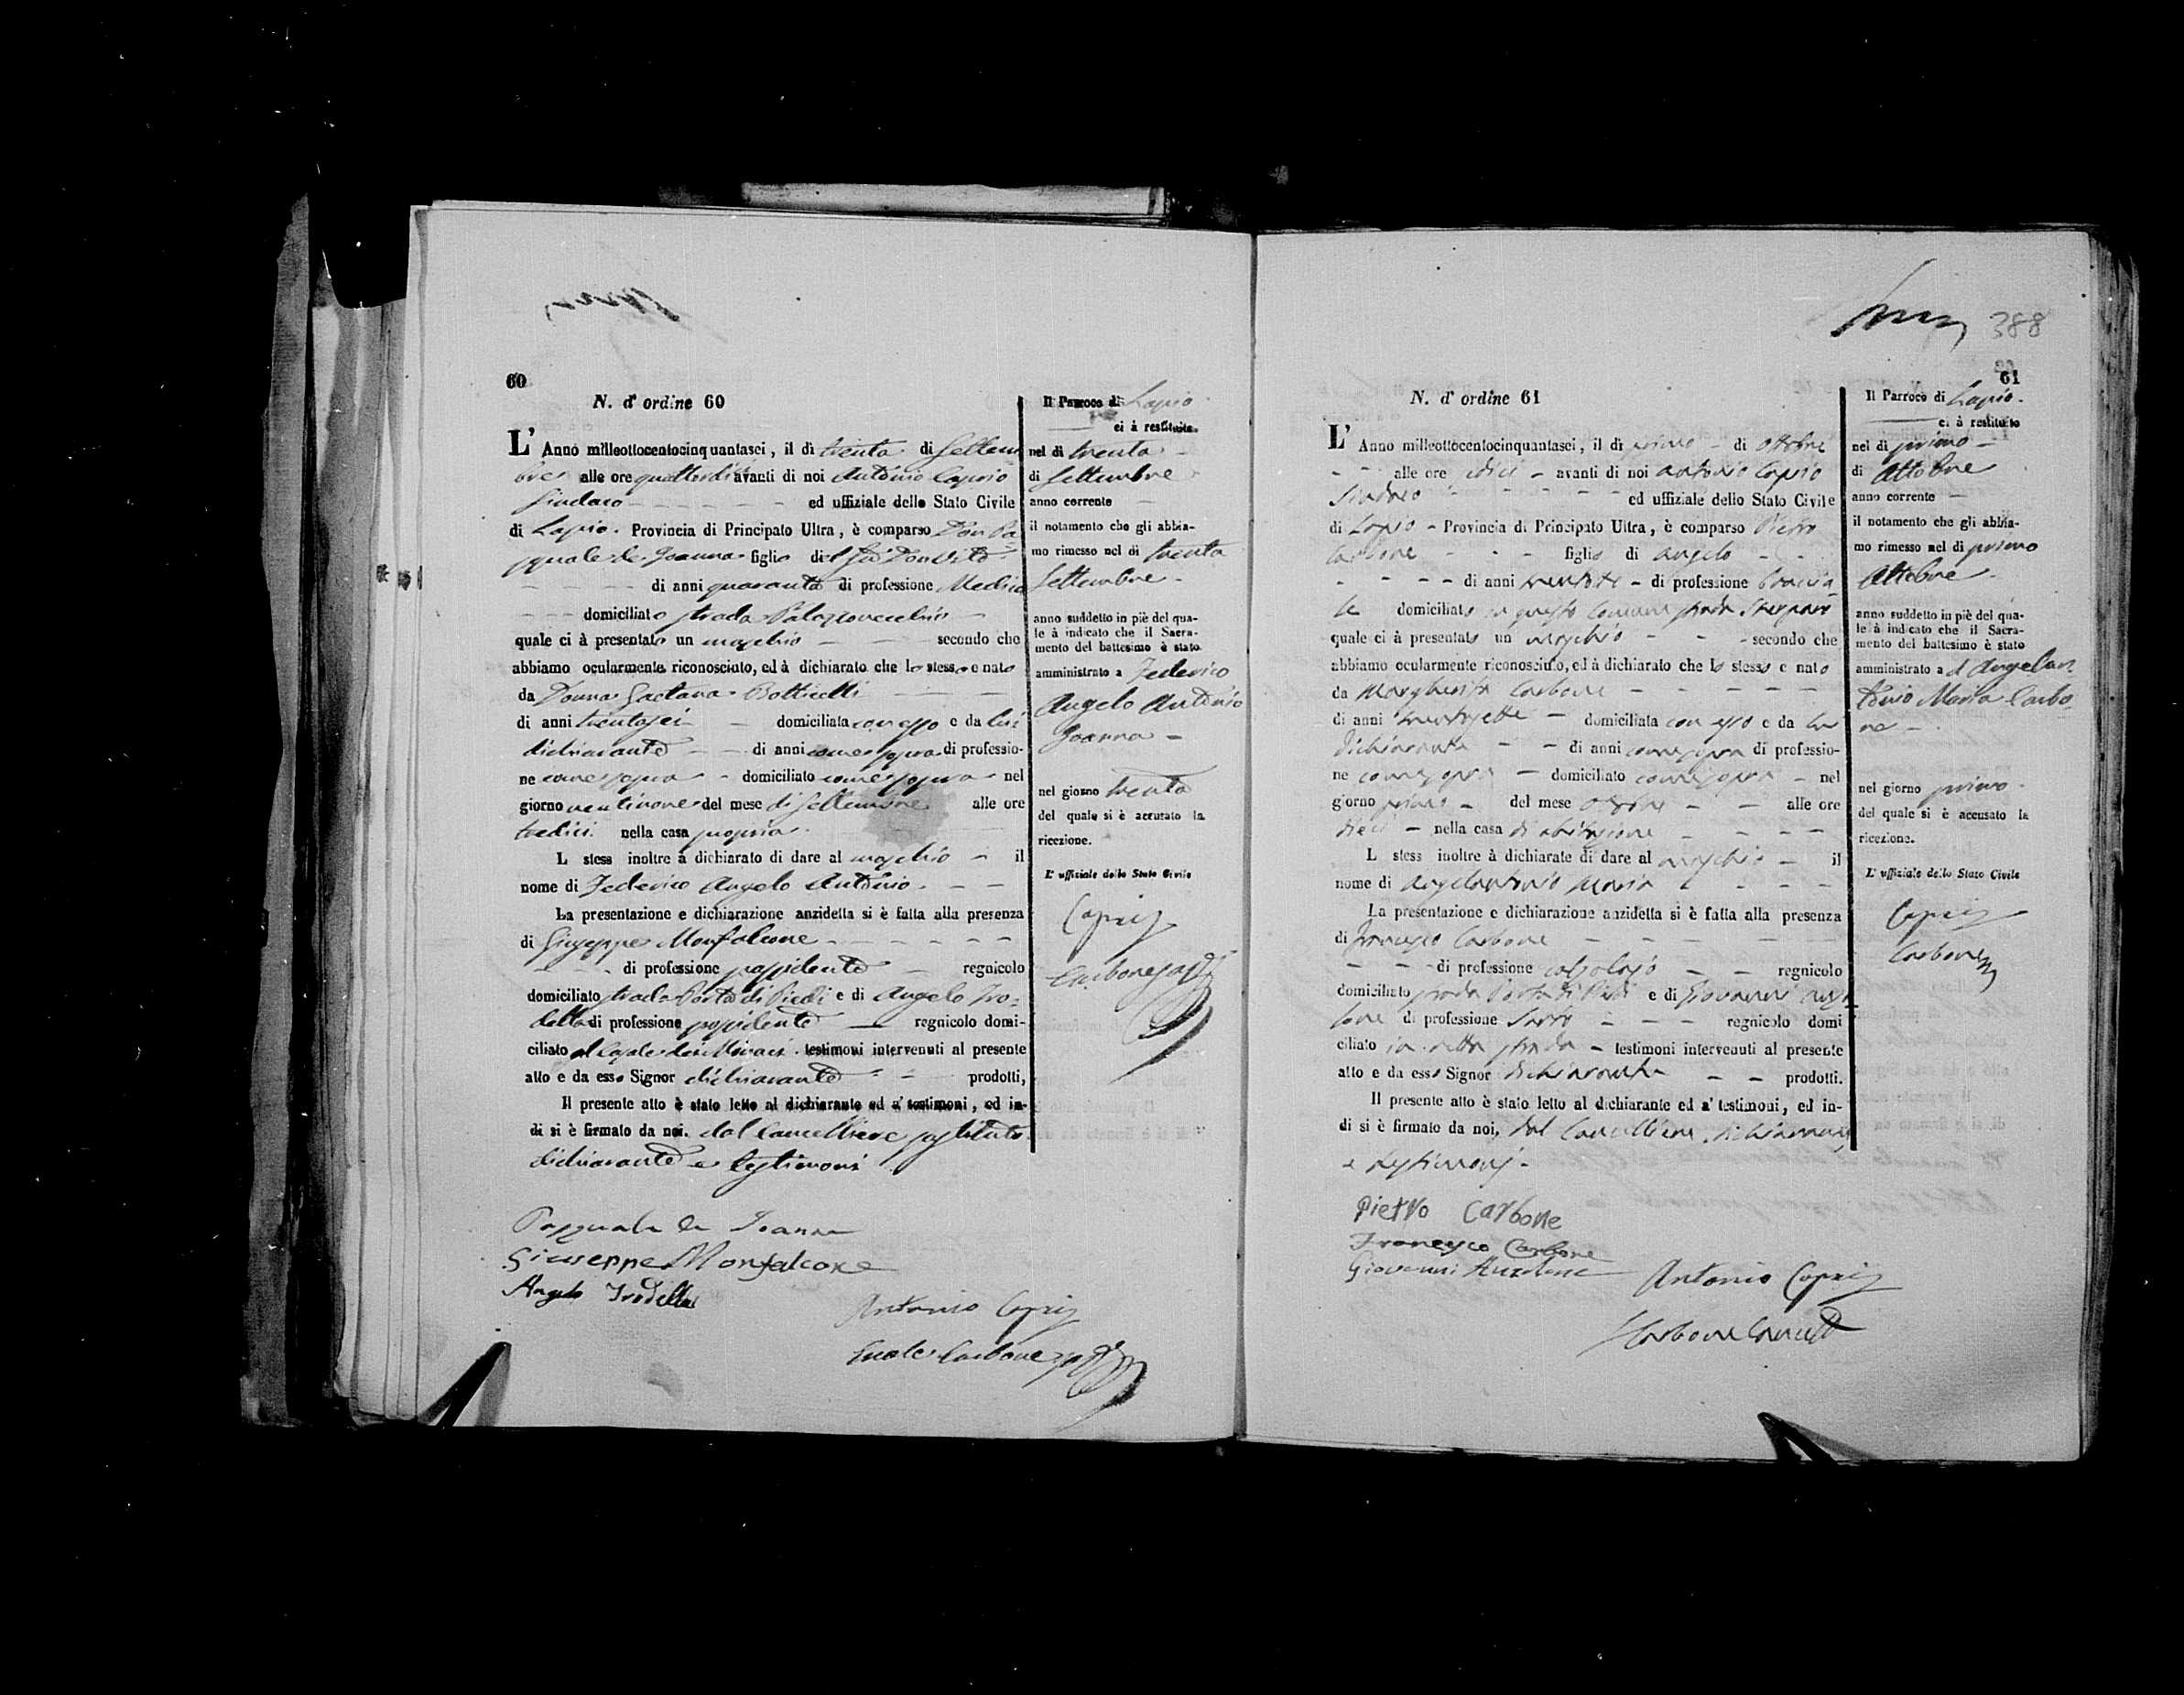 60
N. d' ordine 60
L' Anno milleottocentocinquantasei, il dì trenta di Settem
bre alle ore quattordici avanti di noi Antonio Caprio
Sindaco ed uffiziale dello Stato Civile
di Lapio. Provincia di Principato Ultra, è comparso Don Pa-
squale de Joanna figlio del fù Don Vito
di anni quaranta di professione Medico
domiciliato strada Palazzovecchio
quale ci à presentato un maschio secondo che
abbiamo ocularmente riconosciuto, ed à dichiarato che lo stesso e nato
da Donna Gaetana Botticelli
di anni trentasei domiciliata con esso e da lui
dichiarante di anni come sopra di professio-
ne come sopra domiciliato come sopra nel
giorno ventinove del mese di Settembre alle ore
tredici nella casa propria
L stess inoltre à dichiarato di dare al maschio il
nome di Federico Angelo Antonio
La presentazione e dichiarazione anzidetta si è fatta alla presenza
di Giuseppe Monfalcone
di professione possidente regnicolo
domiciliato strada Porta di Piedi e di Angelo Tro-
della di professione possidente regnicolo domi-
ciliato al testimoni intervenuti al presente
atto e da esso Signor dichiarante prodotti,
Il presente atto è stato letto al dichiarante ed a' testimoni, ed in-
di si è firmato da noi. dal Cancelliere sostituto
dichiarante e testimoni
Pasquale de Joanna
Giuseppe Monfalcone
Angelo Trodella
Antonio Caprio
Carbone
Il Parroco di Lapio
ci à restituito
nel dì trenta
di Settembre
anno corrente
il notamento che gli abbia-
mo rimesso nel di trenta
Settembre
anno suddetto in piè del qua-
le à indicato che il Sacra-
mento del battesimo è stato
amministrato a Federico
Angelo Antonio
Joanna
nel giorno trenta
del quale si è accusato la
ricezione.
L' uffiziale dello Stato Civile
Caprio
Carbone
388
61
N. d' ordine 61
L' Anno milleottocentocinquantasei, il dì primo di Ottobre
alle ore dieci avanti di noi Antonio Caprio
Sindaco ed uffiziale dello Stato Civile
di Lapio Provincia di Principato Ultra, è comparso Pietro
Carbone figlio di Angelo
di anni di professione
domiciliato in questo Comune strada
quale ci à presentato un maschio secondo che
abbiamo ocularmente riconosciuto, ed à dichiarato che lo stesso e nato
da Margherita Carbone
di anni trentasette domiciliata con esso e da lui
dichiarante di anni come sopra di professio-
ne come sopra domiciliato come sopra nel
giorno primo del mese Ottobre alle ore
dieci nella casa di abitazione
L stess inoltre à dichiarato di dare al maschio il
nome di Angelantonio Maria
La presentazione e dichiarazione anzidetta si è fatta alla presenza
di Francesco Carbone
di professione calzolajo regnicolo
domiciliato strada Porta di Piedi e di Giovanni Anza
lone di professione Sarto regnicolo domi
ciliato in detta strada testimoni intervenuti al presente
atto e da esso Signor dichiarante prodotti.
Il presente atto è stato letto al dichiarante ed a' testimoni, ed in-
di si è firmato da noi, dal Cancelliere, dichiarante,
e testimonj.
Pietro Carbone
Francesco Carbone
Giovanni Anzalone
Antonio Caprio
Carbone
Il Parroco di Lapio.
ci à restituito
nel dì primo
di Ottobre
anno corrente
il notamento che gli abbia-
mo rimesso nel di primo
Ottobre
anno suddetto in piè del qua-
le à indicato che il Sacra-
mento del battesimo è stato
amministrato a d Angelan-
tonio Maria Carbo-
ne
nel giorno primo
del quale si è accusato la
ricezione.
L' uffiziale dello Stato Civile
Caprio
Carbone